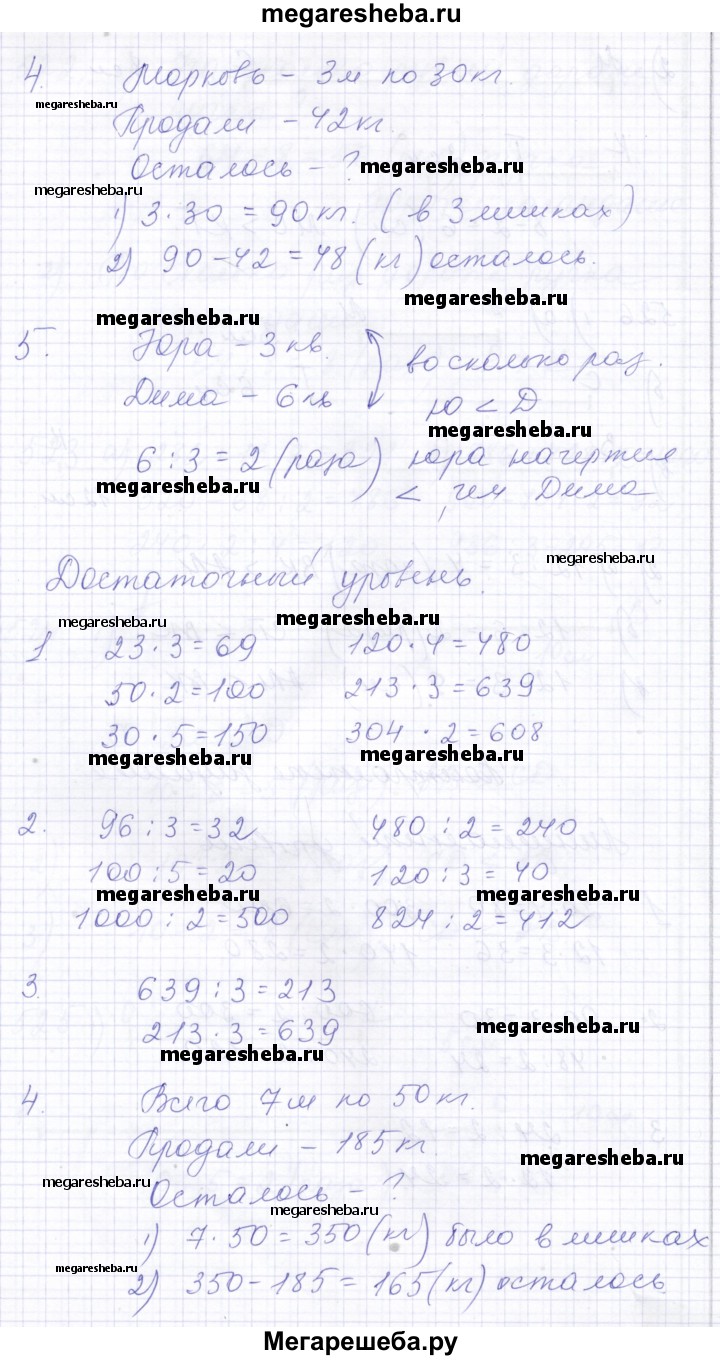 megaresheba.ru
4. Морковь - 3м по 30кг.
megaresheba.ru
Продали - 42кг.
Осталось - ? megaresheba.ru
megaresheba.ru
1) 3·30 = 90кг. (в 3 мешках)
2) 90-42 = 48 (кг) осталось.
megaresheba.ru
megaresheba.ru
5. Юра - 3 кв. во сколько раз.
Дима - 6 кв ю < Д
megaresheba.ru
6 : 3 = 2 (раза) юра начертил
megaresheba.ru < , чем Дима
Достаточный уровень.
megaresheba.ru
megaresheba.ru megaresheba.ru
1. 23·3=69 120·4=480
50·2=100 213·3=639
30·5=150 304·2=608
megaresheba.ru megaresheba.ru
2. 96:3=32 480:2=240
100:5=20 120:3=40
megaresheba.ru megaresheba.ru
1000:2=500 824:2=412
3. 639:3=213
213·3=639 megaresheba.ru
megaresheba.ru
4. Всего 7м по 50кг.
Продали - 185кг
megaresheba.ru
megaresheba.ru
Осталось - ?
megaresheba.ru
1) 7·50=350(кг) было в мешках
megaresheba.ru
2) 350-185=165(кг) осталось
megaresheba.ru
Мегарешеба.ру